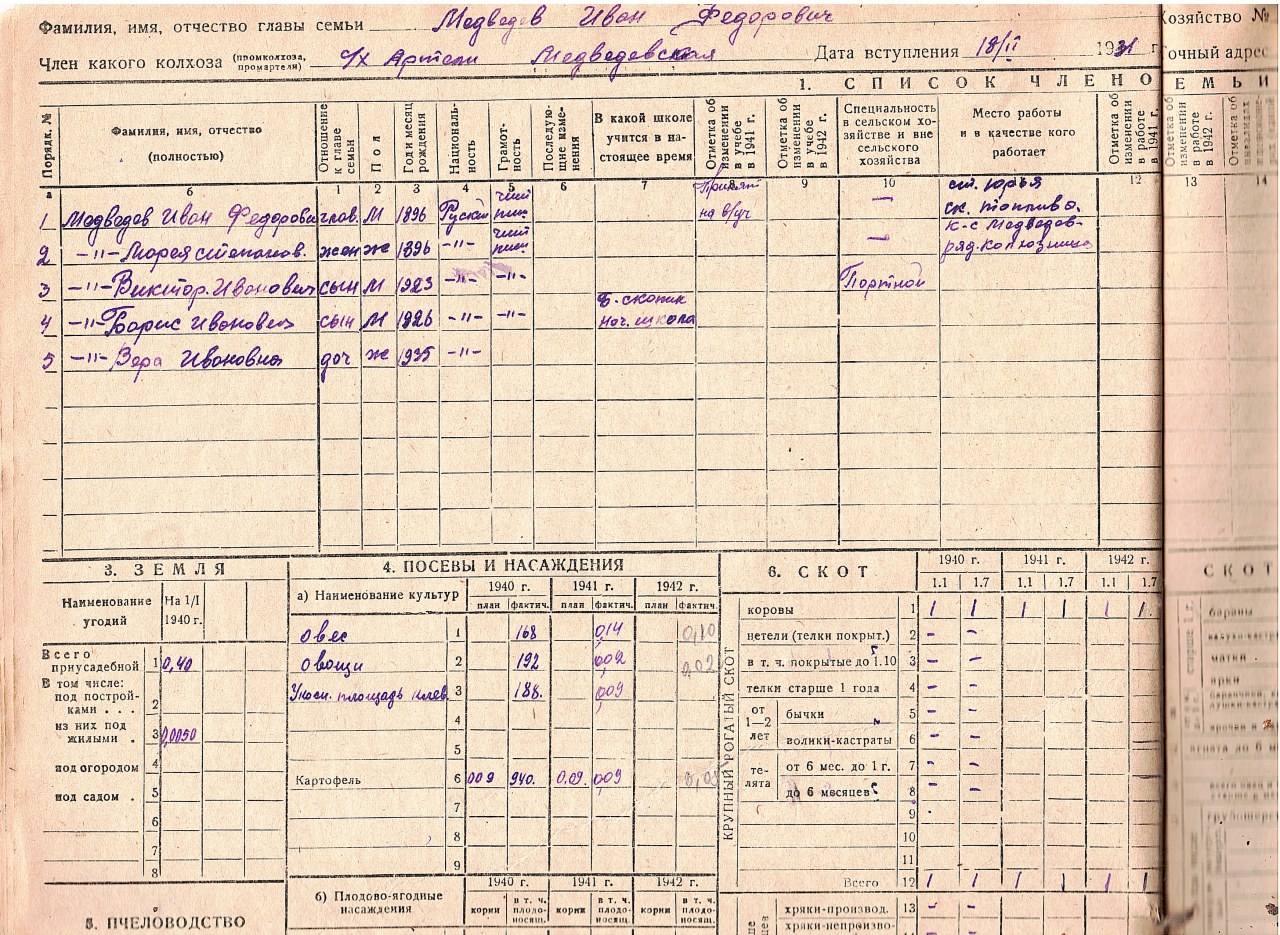 Фамилия, имя, отчество главы семьи Медведев Иван Федорович
Хозяйство №
Член какого колхоза (промколхоза, промартели) с/х Артели Медведевская Дата вступления 18/II 1931 г.
Точный адрес
1. СПИСОК ЧЛЕНО ЕМЬИ
Порядк. №
Фамилия, имя, отчество (полностью)
Отношение к главе семьи
Пол
Год и месяц рождения
Националь-ность
Грамот-ность
Последую-щие изме-нения
В какой школе учится в на-стоящее время
Отметка об изменении в учебе в 1941 г.
Отметка об изменении в учебе в 1942 г.
Специальность в сельском хо-зяйстве и вне сельского хозяйства
Место работы и в качестве кого работает
Отметка об изменении в работе в 1941 г.
Отметка об изменении в работе в 1942 г.
Отметка об
а б 1 2 3 4 5 6 7 8 9 10 12 13 14
1 Медведев Иван Федорови глав. М 1896 Руский чит пис. Принят на в/уч — ст. Юрья ск. топлива.
2 —"— Мария степанов. жен ж 1896 —"— чит пис. — к-с Медведев- ряд. колхозница
3 —"— Виктор. Иванович сын М 1923 —"— —"— Портной
4 —"— Борис Иванович сын М 1926 —"— —"— Б. скопин нач. школа
5 —"— Вера Ивановна доч ж 1935 —"—
3. ЗЕМЛЯ
Наименование угодий На 1/I 1940 г.
Всего приусадебной 1 0,40
В том числе: под построй-ками . . . 2
из них под жилыми . 3 0,0050
под огородом 4
под садом . 5
6
7
8
5. ПЧЕЛОВОДСТВО
4. ПОСЕВЫ И НАСАЖДЕНИЯ
а) Наименование культур 1940 г. 1941 г. 1942 г.
план фактич. план фактич. план фактич.
овес 1 168 0,14 0,10
овощи 2 192 0,02 0,02
Укосн. площадь клев. 3 188. 0,09
4
5
Картофель 6 009 940. 0.09. 0,09
7
8
9
б) Плодово-ягодные насаждения 1940 г. 1941 г. 1942 г.
корни в т. ч. плодо-носящ. корни в т. ч. плодо-носящ. корни в т. ч. плодо-носящ.
6. СКОТ
1940 г. 1941 г. 1942 г.
1.1 1.7 1.1 1.7 1.1 1.7
КРУПНЫЙ РОГАТЫЙ СКОТ
коровы 1 1 1 1 1 1 1
нетели (телки покрыт.) 2 - -
в т. ч. покрытые до 1.10 3 - -
телки старше 1 года 4 - -
от 1—2 лет
бычки 5 - -
волики-кастраты 6 - -
те-лята
от 6 мес. до 1 г. 7 - -
до 6 месяцев 8 - -
9
10
11
Всего 12 1 1 1 1 1 1
хряки-производ. 13 - -
хряки-непроизво-
СКОТ
старше 1 г.
бараны
матки
ярки
ягната до 6 м